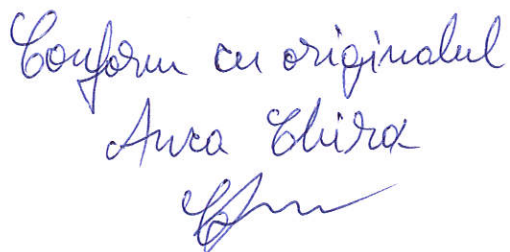 Conform cu originalul
Anca Chira